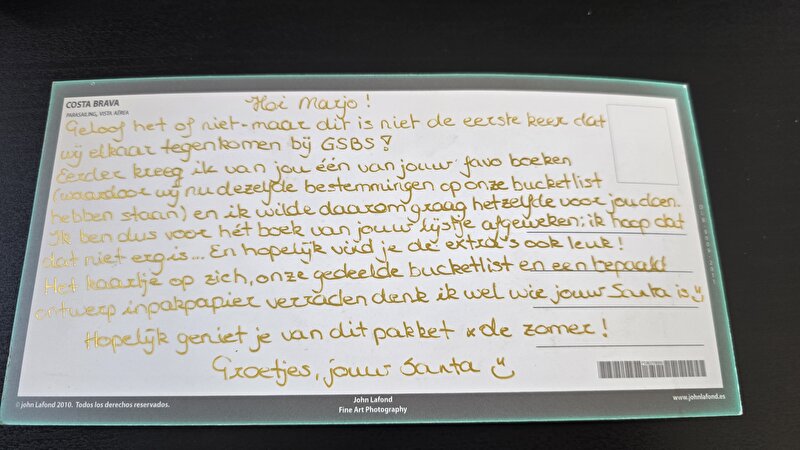 COSTA BRAVA
PARASAILING, VISTA AÉREA
Hoi Marjo!
Geloof het of niet - maar dit is niet de eerste keer dat
wij elkaar tegenkomen bij GSBS!
Eerder kreeg ik van jou één van jouw favo boeken
(waardoor wij nu dezelfde bestemmingen op onze bucketlist
hebben staan) en ik wilde daarom graag hetzelfde voor jou doen.
Ik ben dus voor hét boek van jouw lijstje afgeweken; ik hoop dat
dat niet erg is... En hopelijk vind je de extra's ook leuk!
Het kaartje op zich, onze gedeelde bucketlist en een bepaald
ontwerp inpakpapier verraden denk ik wel wie jouw Santa is
Hopelijk geniet je van dit pakket & de zomer!
Groetjes, jouw Santa
© John Lafond 2010. Todos los derechos reservados.
John Lafond
Fine Art Photography
www.johnlafond.es